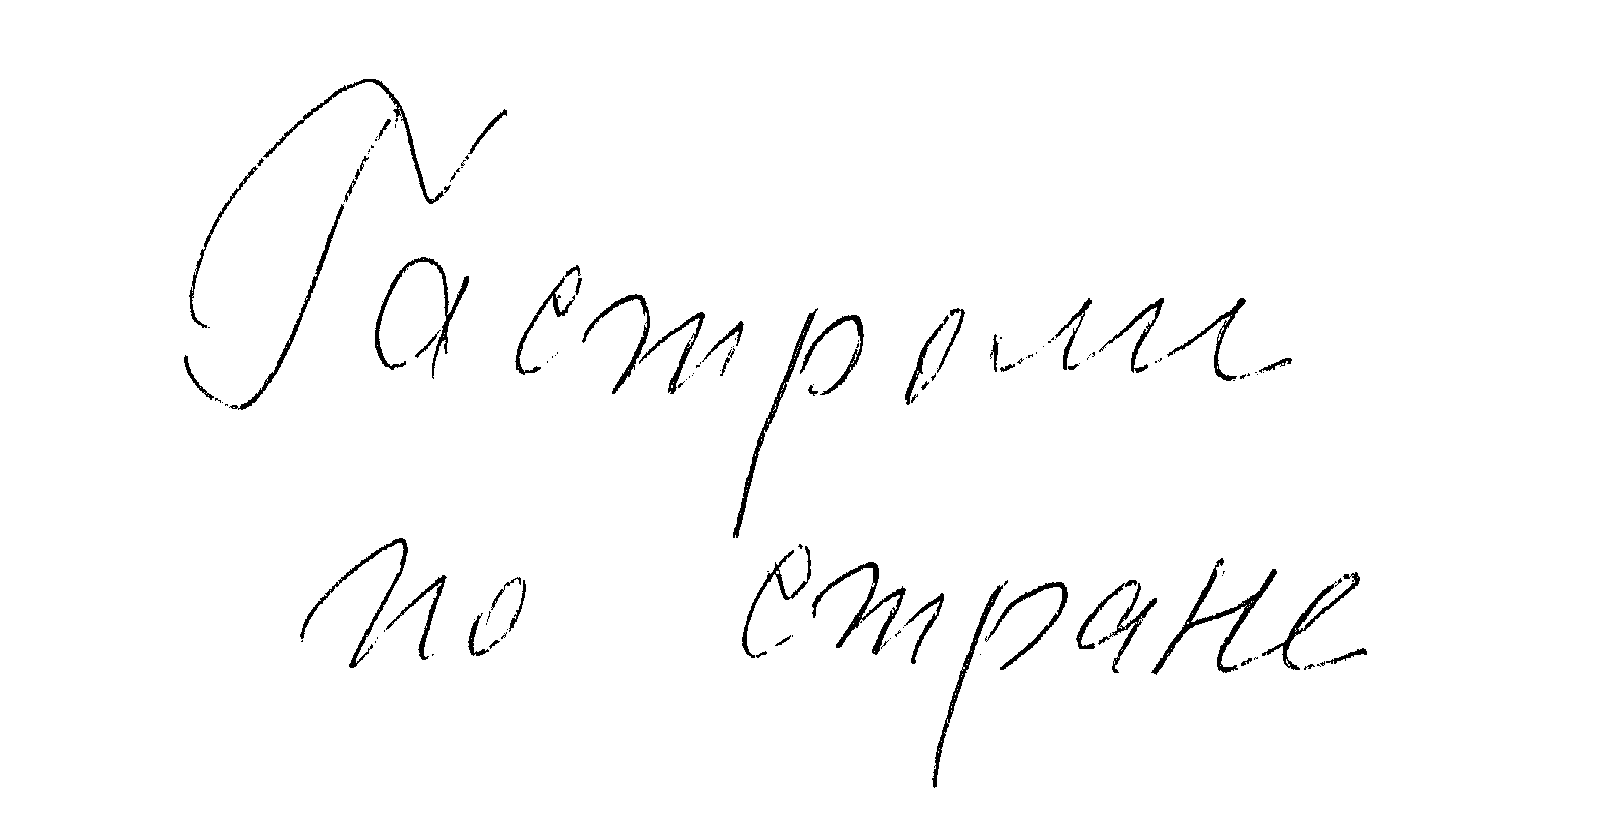 Гастроли
по стране